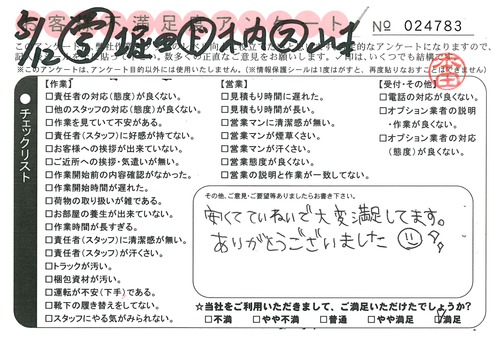 お客様不満足度アンケート
№ 024783
5/12
※このアンケートは、アンケート目的以外には使用いたしません。（※情報保護シールは1度はがすと、再度貼りなおすことはできません）
チェックリスト
【作業】
□責任者の対応（態度）が良くない。
□他のスタッフの対応（態度）が良くない。
□作業を見ていて不安がある。
□責任者（スタッフ）に好感が持てない。
□お客様への挨拶が出来ていない。
□ご近所への挨拶・気遣いが無い。
□作業開始前の内容確認がなかった。
□作業開始時間が遅れた。
□荷物の取り扱いが雑である。
□お部屋の養生が出来ていない。
□作業時間が長すぎる。
□責任者（スタッフ）に清潔感が無い。
□責任者（スタッフ）が汗くさい。
□トラックが汚い。
□梱包資材が汚い。
□運転が不安（下手）である。
□靴下の履き替えをしてない。
□スタッフにやる気がみられない。
【営業】
□見積もり時間に遅れた。
□見積もり時間が長い。
□営業マンに清潔感が無い。
□営業マンが煙草くさい。
□営業マンが汗くさい。
□営業態度が良くない。
□営業の説明と作業が一致してない。
【受付・その他】
□電話の対応が良くない。
□オプション業者の説明
・作業が良くない。
□オプション業者の対応
（態度）が良くない。
その他、ご意見・ご要望等ありましたらお書き下さい。
安くてていねいで大変満足してます。
ありがとうございました
☆当社をご利用いただきまして、ご満足いただけたでしょうか？
□不満 □やや不満 □普通 □やや満足 □満足